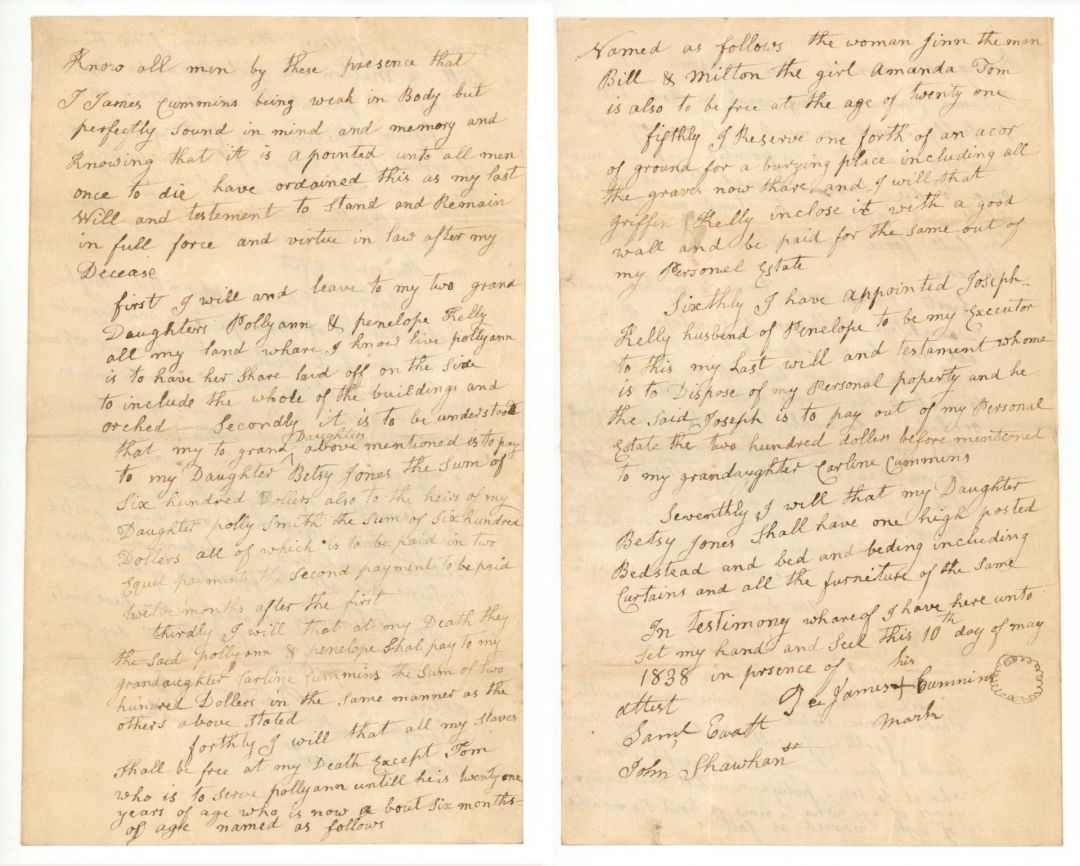 Know all men by these presence that
I James Cummins being weak in Body but
perfectly Sound in mind and memory and
Knowing that it is apointed unto all men
once to die have ordained this as my last
Will and testement to Stand and Remain
in full force and virtue in law after my
Decease
first I will and leave to my two grand
Daughters Pollyann & penelope Kelly
all my land whare I know live pollyann
is to have her Share laid off on the Side
to include the whole of the buildings and
orched Secondly it is to be understoode
Daughters
that my to grand ^ above mentioned is to pay
to my Daughter Betsy Jones the Sum of
Six hundred Dollers also to the heirs of my
Daughter polly Smith the Sum of Six hundred
Dollers all of which is to be paid in two
Equil payments the Second payment to be paid
twelve months after the first
thirdly I will that at my Death they
the Said pollyann & penelope Shal pay to my
grandaughter Carline Cummins the Sum of two
hundred Dollers in the Same manner as the
others above Stated
forthly I will that all my Slaves
Shall be free at my Death Except Tom
who is to Serve pollyann untill he is twenty one
years of age who is now a bout Six months
of age named as follows
Named as follows the woman Jinn the man
Bill & Milton the girl Amanda Tom
is also to be free at the age of twenty one
fifthly I Reserve one forth of an acor
of ground for a burying place including all
the graves now thare and I will that
Griffin Kelly inclose it with a good
wall and be paid for the Same out of
my Personel Estate
Sixthly I have appointed Joseph
Kelly husbend of Penelope to be my Executor
to this my Last will and testament whome
is to Dispose of my Personal poperty and he
the Said Joseph is to pay out of my Personal
Estate the two hundred dollers before mentened
to my grandaughter Carline Cummins
Seventhly I will that my Daughter
Betsy Jones Shall have one high posted
Bedstead and bed and beding including
Curtains and all the furniture of the Same
In testimony whareof I have here unto
Set my hand and Seel this 10th day of may
1838 in prsence of his
attest James + Cummins
Saml Ewalt mark
John Shawhan Sr